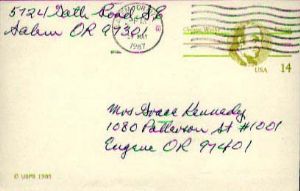 5724 Gath Road SE
Salem OR 97301
1987
USA
14
Mrs Grace Kennedy
1080 Patterson St #1001
Eugene OR 97401
© USPS 1985